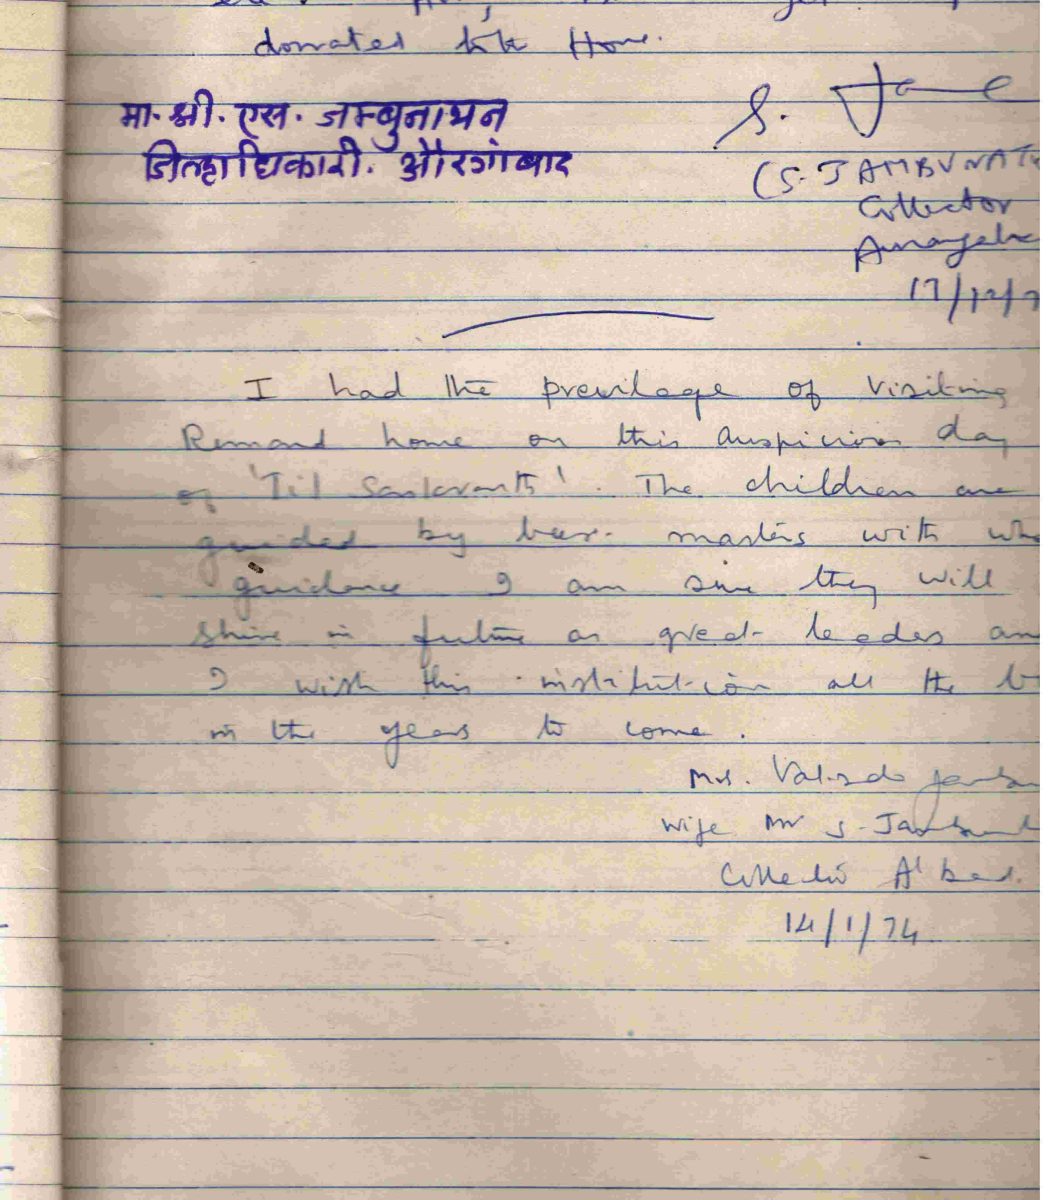 donated to the Home.
मा. श्री. एस. जम्बुनाथन
जिल्हाधिकारी. औरंगाबाद
S. Jam
(S. JAMBUNATH
Collector
Aurangaba
17/12/7
I had the previlage of visiting
Remand home on this auspicious day
of 'Til Sankranti'. The children are
guided by masters with who
guidance I am sure they will
shine in future as great leaders an
I wish this institution all the b
in the years to come.
Mrs.
wife Mr S. Jambunat
Collector A'bad.
14/1/74